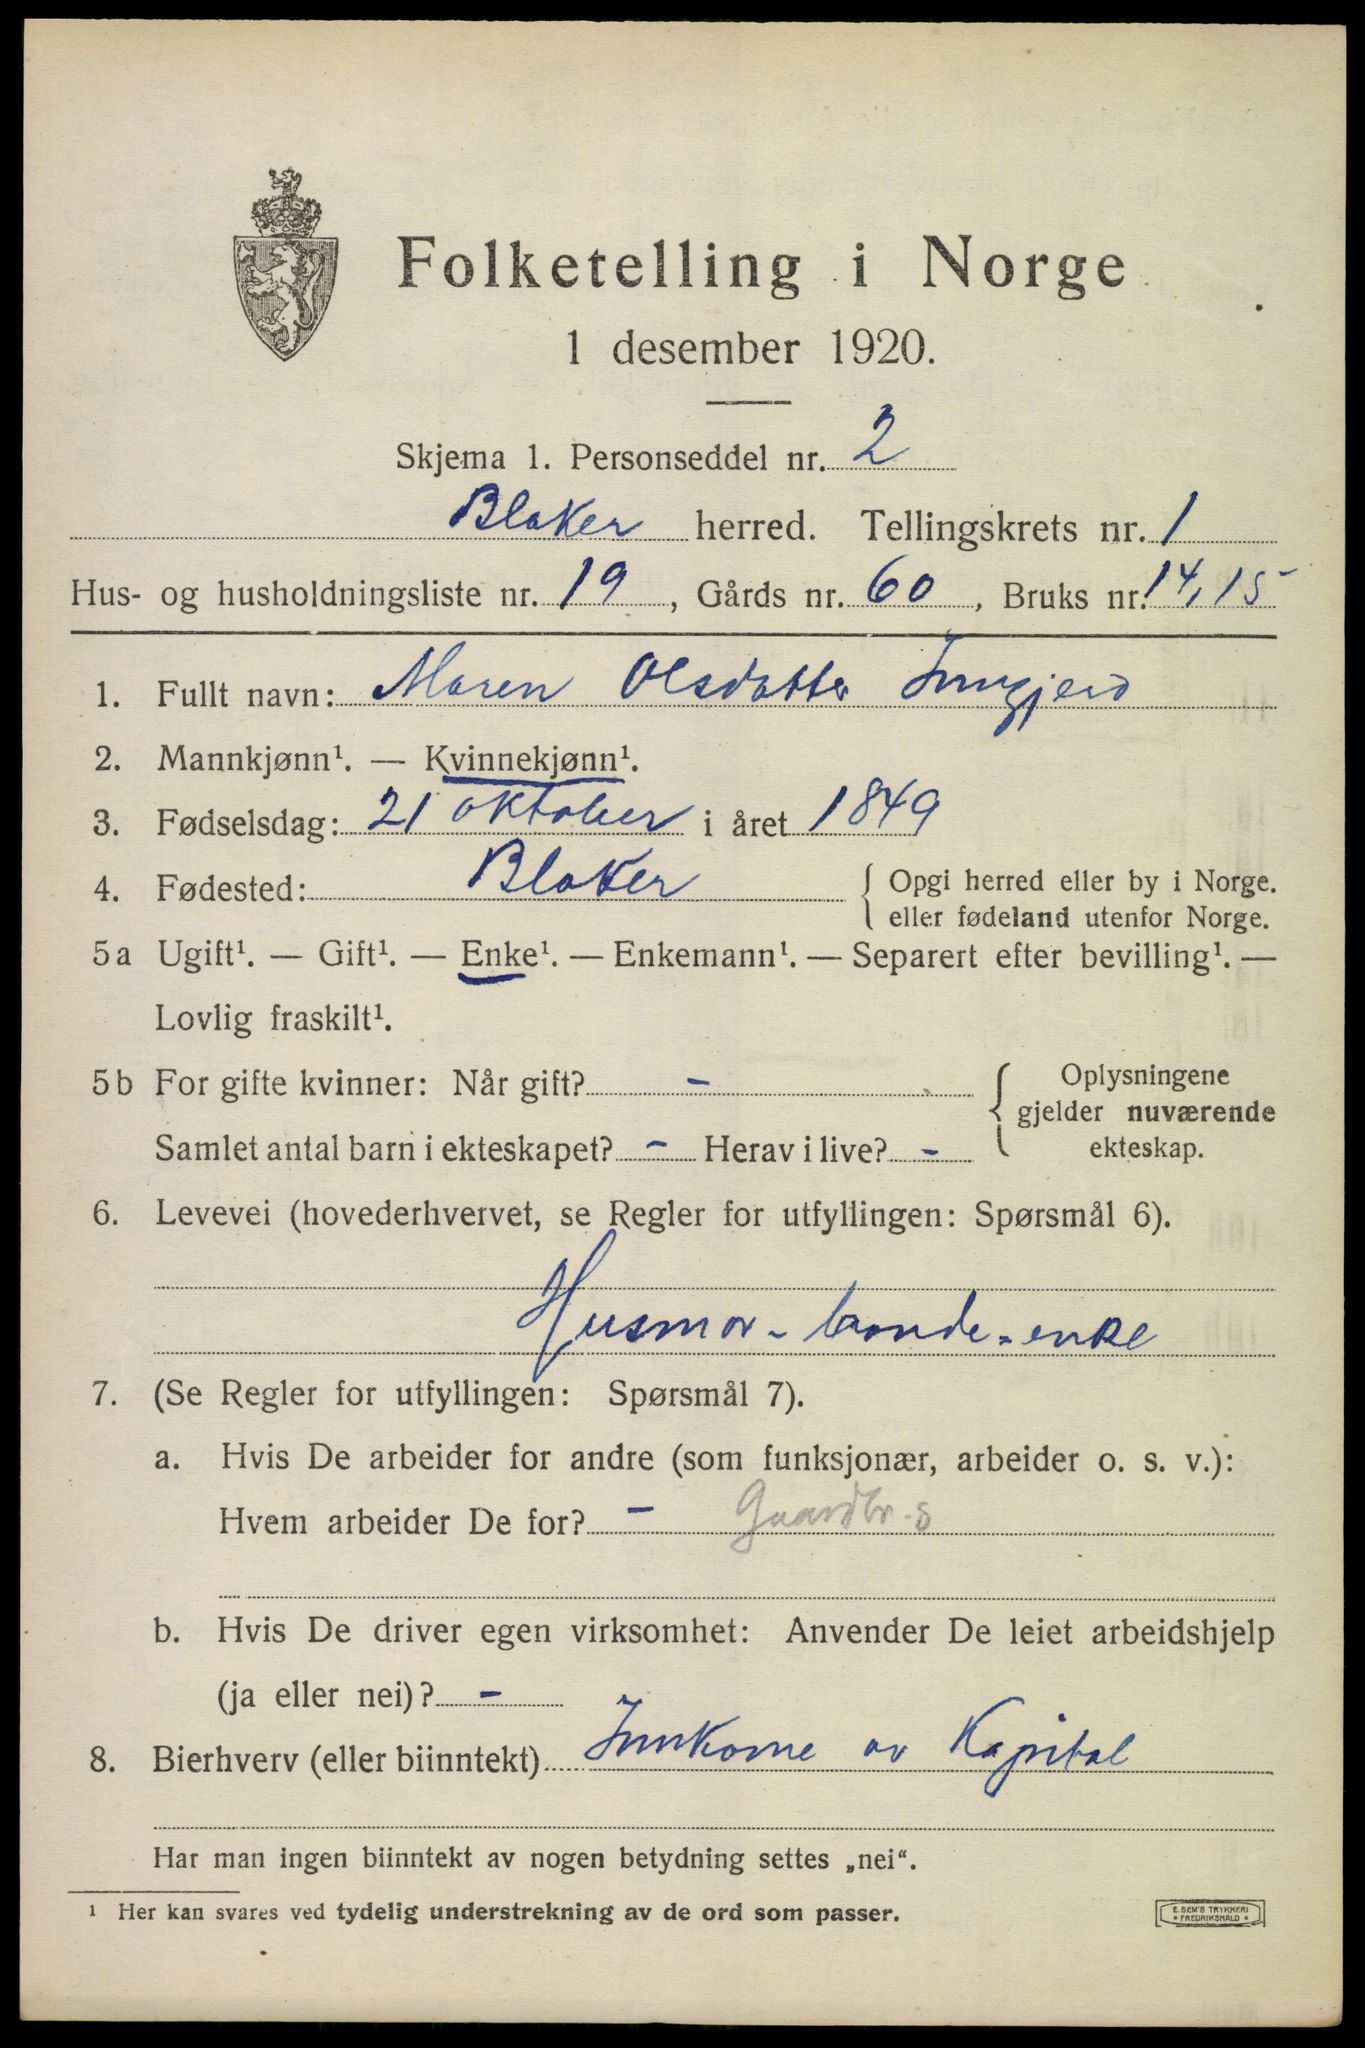 Folketelling i Norge
1 desember 1920.
Skjema 1. Personseddel nr. 2
Blaker herred. Tellingskrets nr. 1
Hus- og husholdningsliste nr. 19, Gårds nr. 60, Bruks nr. 14, 15
1. Fullt navn: Maren Olsdatter Inngjerd
2. Mannkjønn¹. — Kvinnekjønn¹.
3. Fødselsdag: 21 oktober i året 1849
4. Fødested: Blaker { Opgi herred eller by i Norge.
eller fødeland utenfor Norge.
5a Ugift¹. — Gift¹. — Enke¹. — Enkemann¹. — Separert efter bevilling¹. —
Lovlig fraskilt¹.
5b For gifte kvinner: Når gift? - { Oplysningene
gjelder nuværende
Samlet antal barn i ekteskapet? - Herav i live? - ekteskap.
6. Levevei (hovederhvervet, se Regler for utfyllingen: Spørsmål 6).
Husmor - bonde-enke
7. (Se Regler for utfyllingen: Spørsmål 7).
a. Hvis De arbeider for andre (som funksjonær, arbeider o. s. v.):
Hvem arbeider De for? - Gaardbr. s
b. Hvis De driver egen virksomhet: Anvender De leiet arbeidshjelp
(ja eller nei)? -
8. Bierhverv (eller biinntekt) Innkome av Kapital
Har man ingen biinntekt av nogen betydning settes „nei“.
¹ Her kan svares ved tydelig understrekning av de ord som passer.
E. SEM'S TRYKKERI
* FREDRIKSHALD *